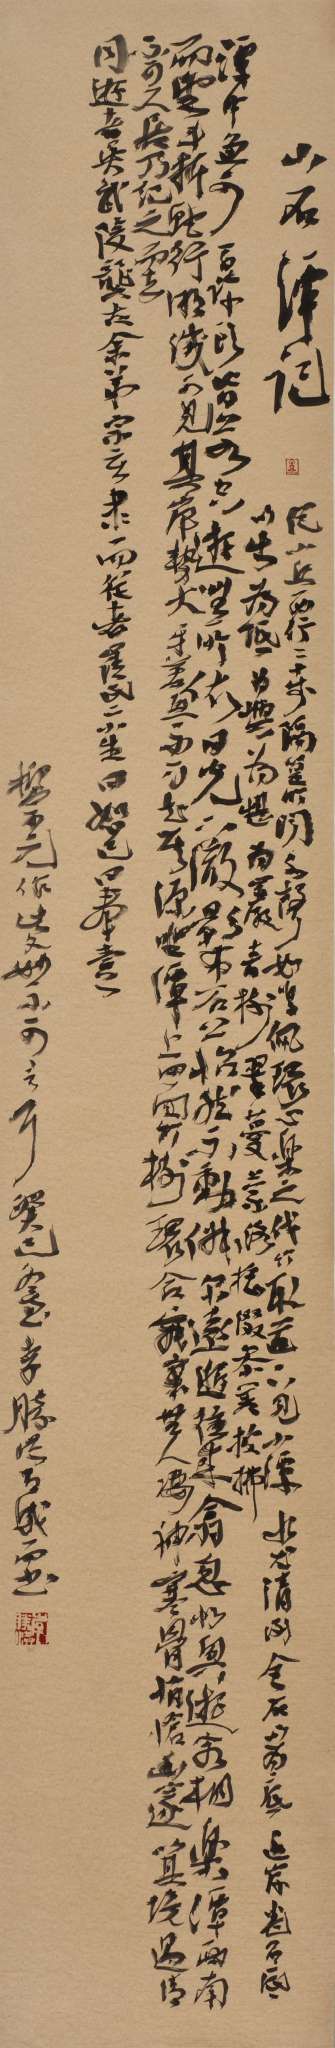 小石潭记
從小丘西行二十步隔篁竹闻水聲如鳴佩環心樂之伐竹取道下見小潭水尤清冽全石以为底近岸卷石底
以出为坻为嶼为嵁为巖青樹翠蔓蒙络摇缀参差披拂
潭中魚可百许頭皆若空遊無所依日光下澈影布石上怡然不動俶尔遠逝往来翕忽似與遊者相樂潭西南
而望斗折蛇行明滅可見其岸勢犬牙差互不可知其源坐潭上四面竹樹環合寂寥無人凄神寒骨悄愴幽邃以其境過清
不可久居乃记之而去
同遊者吴武陵龔古余弟宗玄隶而從者崔氏二小生曰恕己曰奉壹
柳宗元作此文妙不可言耳癸巳李勝洪